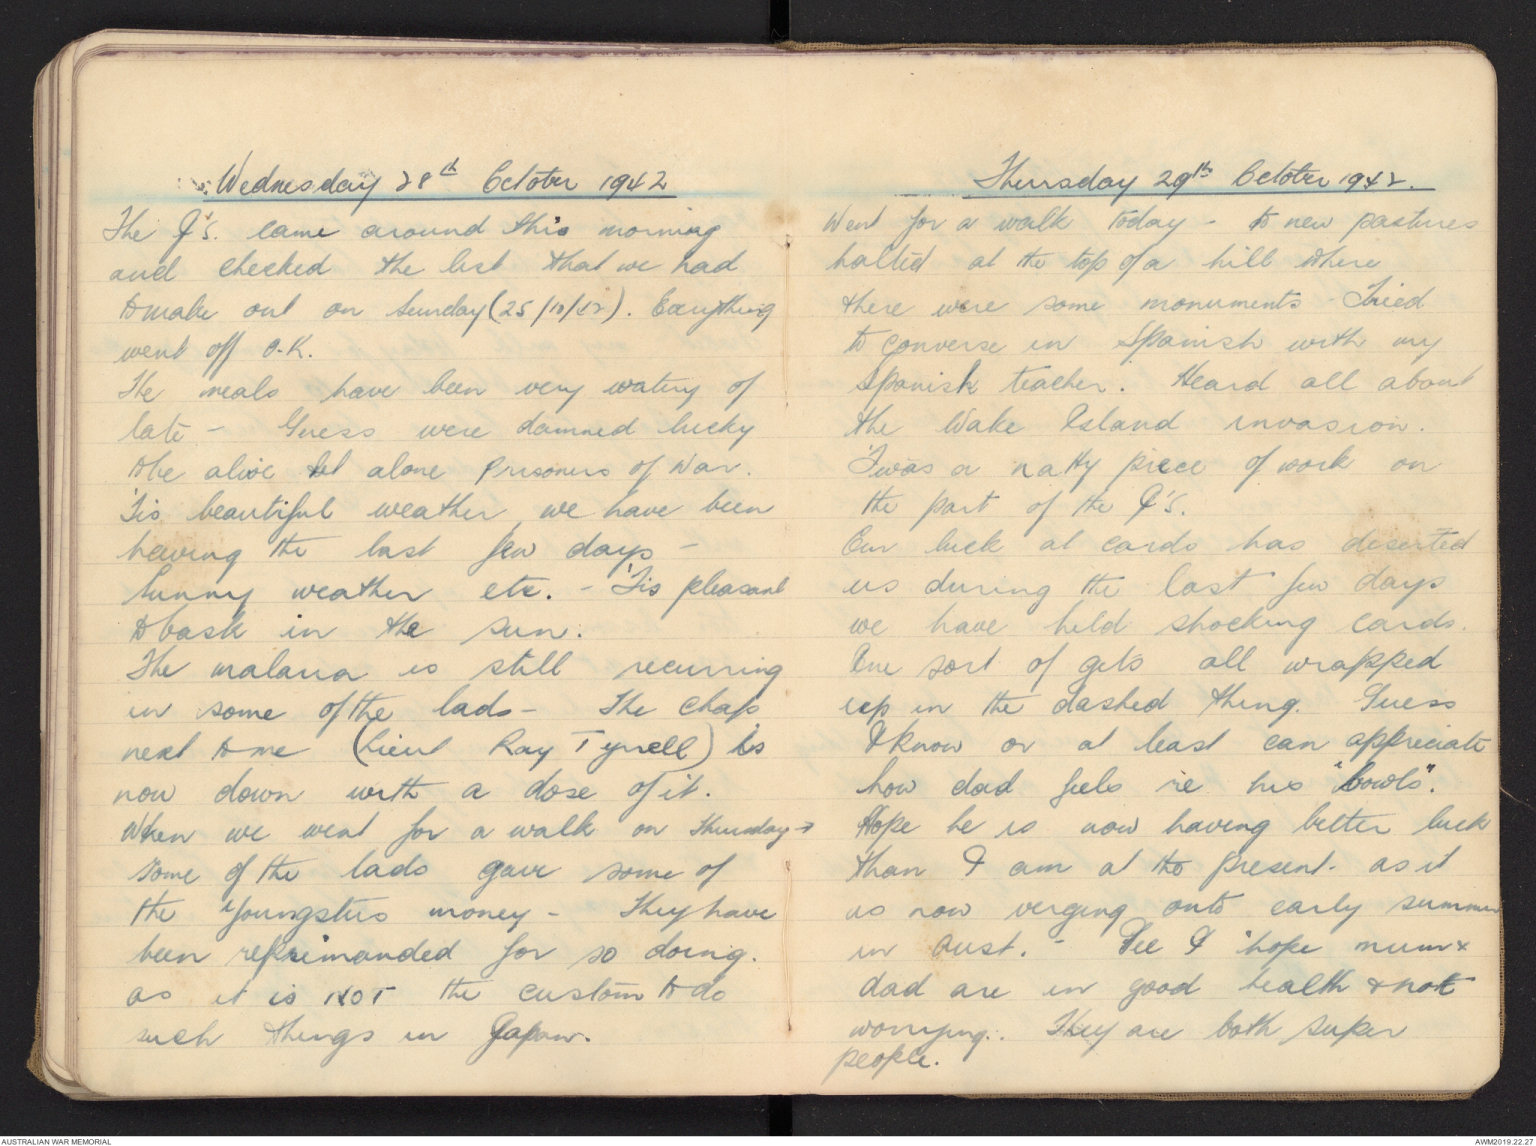 Wednesday 28th October 1942
The J's. came around this morning
and checked the list that we had
to make out on Sunday (25/10/42). Everything
went off O.K.
The meals have been very watery of
late - Guess were damned lucky
to be alive let alone Prisoners of War.
'Tis beautiful weather we have been
having the last few days -
Sunny weather etc. - 'Tis pleasant
to bask in the sun.
The malaria is still recurring
in some of the lads - The chap
next to me (Lieut Ray Tyrrell) is
now down with a dose of it.
When we went for a walk on Thursday →
some of the lads gave some of
the youngsters money - They have
been reprimanded for so doing.
as it is NOT the custom to do
such things in Japan.
Thursday 29th October 1942.
Went for a walk today - to new pastures
halted at the top of a hill where
there were some monuments - Tried
to converse in Spanish with my
Spanish teacher. Heard all about
the Wake Island invasion.
'Twas a natty piece of work on
the part of the J's.
Our luck at cards has deserted
us during the last few days
we have held shocking cards.
One sort of gets all wrapped
up in the dashed thing. Guess
I know or at least can appreciate
how dad feels re his "bowls".
Hope he is now having better luck
than I am at the present. as it
is now verging onto early summer
in Aust. - Gee I hope mum &
dad are in good health & not
worrying. They are both super
people.
AUSTRALIAN WAR MEMORIAL
AWM2019.22.27